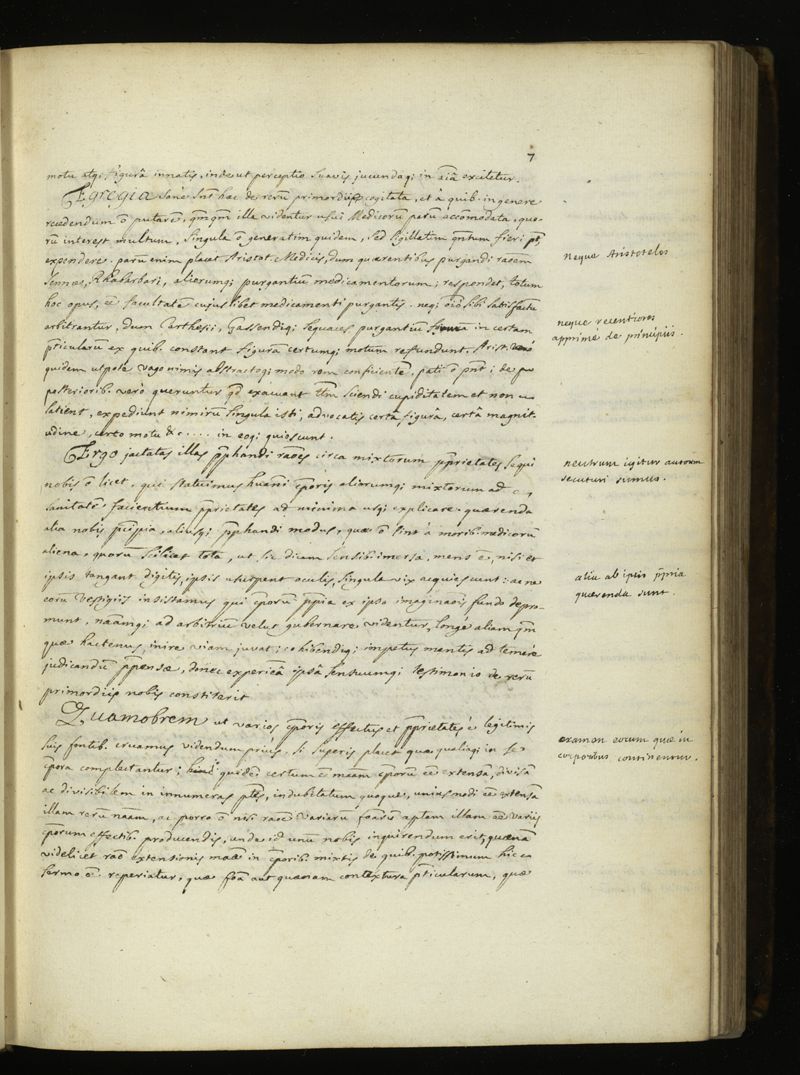 7
motu atq; figurâ innatis, inde ut perceptio suavis jucundaq; in aîa excitetur.
Egregia sanè snt hac de rerū primordiis cogitata, et à quib. in genere
recedendum ō putarē, qmqm illa videntur usui Medicorum parū accomodata, quo-
rū interest multum, singula ō generatim quidem, sed sigillatim qntum fieri pt,
expendere. parū enim placet Aristot. Medicis, dum quærentibus purgandi raōem
sennæ, Rhabarbari, aliorumq; purgantiū medicamentorum; respondet, totum
hoc opus, ēē facultatē cujuslibet medicamenti purgantis. neq; oīō sibi satisfactū
arbitrantur, dum Carthesii, Gassendiq; sequaces purgantiū in certam
pticularū ex quib. constant figurā certumq; motum refundunt. Arist. verò
quidem utpotè vago nimis abstractoq; modo rem conficientē, pati ō pnt; de
posteriorib. verò queruntur qd exacuant tm sciendi cupiditatem et non
satient, expediunt nimirū singula isti, advocatis certâ figurâ, certâ magnit-
udine, certo motu &c.... in eoq; quiescunt.
Ergo jactatas illas pphandi raōes circa mixtorum pprietates sequi
nobis ō licet, qui statuimus huāni cporis aliorumq; mixtorum ad
sanitatē facientium pprietates ad minima usq; explicare. quærenda
alia nobis pcipia, aliusq; pphandi modus, quæ ō sint à morib. medicorū
aliena, quorū scilicet tota, ut sic dicam sensib. imersa, mens ē, nisi et
ipsis tangant digitis, ipsis usurpent oculis, singula vix acquiescunt: ac ne
eorū vestigiis insistamus qui cporū ppia ex ipso imaginaōis fundo depro-
munt, naāmq; ad arbitriū velut gubernare videntur, longè aliam qm
quæ hactenus, inire viam juvat; cohibendiq; impetus mentis ad temerè
judicandū ppensæ, donec experiēâ ipsâ sensuumq; testimonio de rerū
primordiis nobis constiterit
Quamobrem ut varios cporis effectus et pprietates è legitimis
suis fontib. eruamus videndum priùs, si superis placet quæ qualiaq; in se
cpora complectantur; quidē certum ē maām cporū ēē extensā, divisā
ac divisibilem in innumeras ptes, indubitatum quoque, unius modi ēē extensā
illam rerū naām, ac porro ō nisi raōe variarū foārū aptam illam ēē variis
cporum effectib. producendis, unde id unū nobis inquirendum erit, quænā
videlicet raō extensionis maāe in cporib. mixtis de quib. potissimum hic
sermo ē. reperiatur, quæ foā aut quænam contextura pticularum, quæ
neque Aristoteles
neque recentiores
apprimè de principiis.
neutrum igitur autorem
secuturi sumus.
alia ab ipsis ppria
quærenda sunt.
examen eorum quæ in
corporibus continentur.